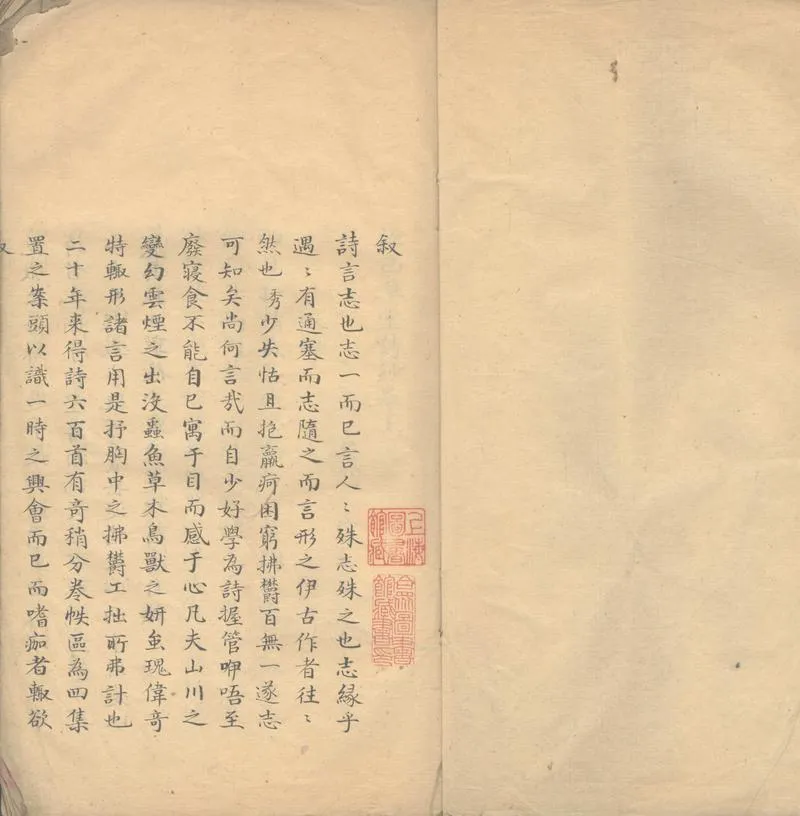 叙
詩言志也志一而已言人〻殊志殊之也志緣乎
遇〻有通塞而志隨之而言形之伊古作者往〻
然也秀少失怙且抱羸疴困窮拂欝百無一遂志
可知矣尚何言哉而自少好學為詩握管咿唔至
廢寢食不能自已寓于目而感于心凡夫山川之
變幻雲煙之出没蟲魚草木鳥獸之妍䖝瑰偉奇
特輙形諸言用是抒胸中之拂欝工拙所弗計也
二十年来得詩六百首有竒稍分卷帙區為四集
置之案頭以識一時之興會而已而嗜痂者輙欲
上海圖書館藏
合眾圖書館藏書印